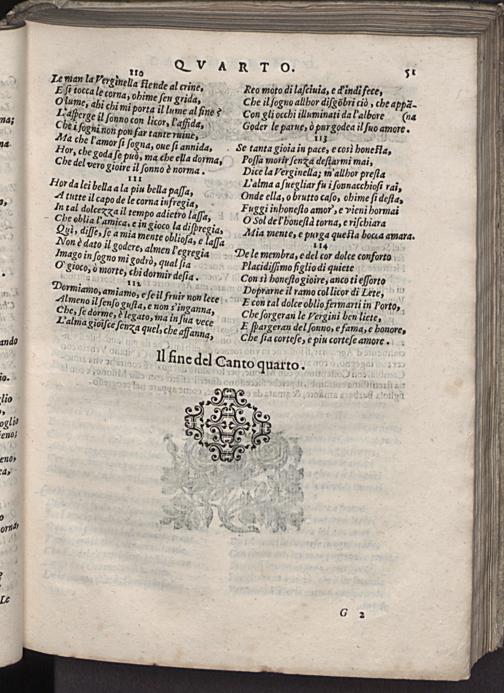 QVARTO.
51
110
Le man la Verginella stende al crine,
E si tocca le corna, ohime sen grida,
O lume, ahi chi mi porta il lume al fine?
L'asperge il sonno con licor, l'affida,
Che i sogni non pon far tante ruine,
Ma che l'amor si sogna, oue si annida,
Hor, che goda se può, ma che ella dorma,
Che del vero gioire il sonno è norma.
111
Hor da lei bella a la piu bella passa,
A tutte il capo de le corna infregia,
In tal dolcezza il tempo adietro lassa,
Che oblia l'amica, e in gioco la dispregia,
Quì, disse, se a mia mente obliosa, e lassa
Non è dato il godere, almen l'egregia
Imago in sogno mi godrò, qual sia
O' gioco, ò morte, chi dormir desia.
112
Dormiamo, amiamo, e se il fruir non lece
Almeno il senso gusta, e non s'inganna,
Che, se dorme, è legato, ma in sua vece
L'alma gioisce senza quel, che affanna,
Reo moto di lasciuia, e d'indi fece,
Che il sogno allhor disgõbri ciò, che appã-
Con gli occhi illuminati da l'albore (na
Goder le parue, ò pur godea il suo amore.
113
Se tanta gioia in pace, e così honesta,
Possa morir senza destarmi mai,
Dice la Verginella; m'allhor presta
L'alma a suegliar fu i sonnacchiosi rai,
Onde ella, o brutto caso, ohime si desta,
Fuggi inhonesto amor', e vieni hormai
O Sol de l'honestà torna, e rischiara
Mia mente, e purga questa bocca amara.
114
De le membra, e del cor dolce conforto
Placidissimo figlio di quiete
Con sì honesto gioire, anco ti essorto
Doprarne il ramo col licor di Lete,
E con tal dolce oblio fermarti in Porto,
Che sorgeran le Vergini ben liete,
E spargeran del sonno, e fama, e honore,
Che sia cortese, e piu cortese amore.
Il fine del Canto quarto.
G 2